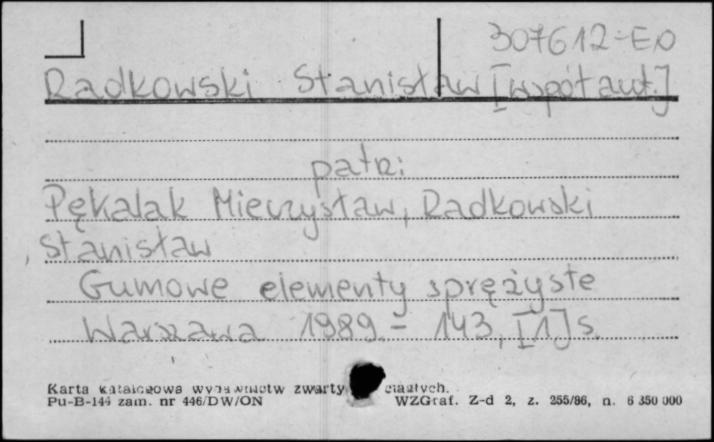 307612-E0
Radkowski Stanisław [współaut.]
patrz:
Pękalak Mieczysław, Radkowski
Stanisław
Gumowe elementy sprężyste
Warszawa 1989. - 143, [1] s.
Karta katalogowa wydawnictw zwartych ciągłych.
Pu-B-144 zam. nr 446/DW/ON WZGraf. Z-d 2, z. 255/86, n. 6 350 000